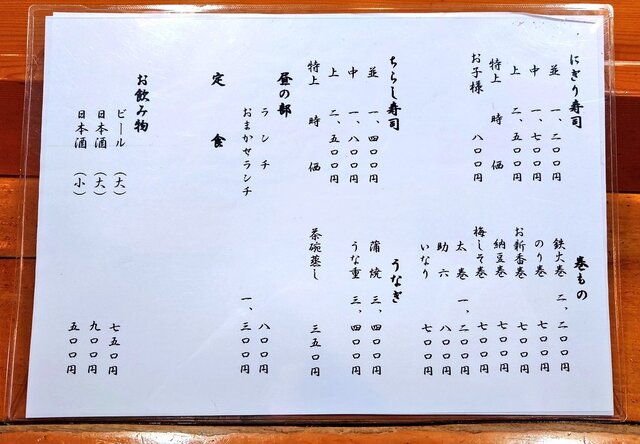 にぎり寿司
並　一、二〇〇円
中　一、七〇〇円
上　二、五〇〇円
特上　時　価
お子様　八〇〇円
巻もの
鉄火巻　二、二〇〇円
のり巻　七〇〇円
お新香巻　七〇〇円
納豆巻　七〇〇円
梅しそ巻　七〇〇円
太巻　一、二〇〇円
助六　八〇〇円
いなり　七〇〇円
ちらし寿司
並　一、四〇〇円
中　一、八〇〇円
上　二、五〇〇円
特上　時　価
うなぎ
蒲焼　三、四〇〇円
うな重　三、四〇〇円
茶碗蒸し　三五〇円
昼の部
ランチ　八〇〇円
おまかせランチ　一、三〇〇円
定　食
お飲み物
ビール　（大）　七五〇円
日本酒　（大）　九〇〇円
日本酒　（小）　五〇〇円